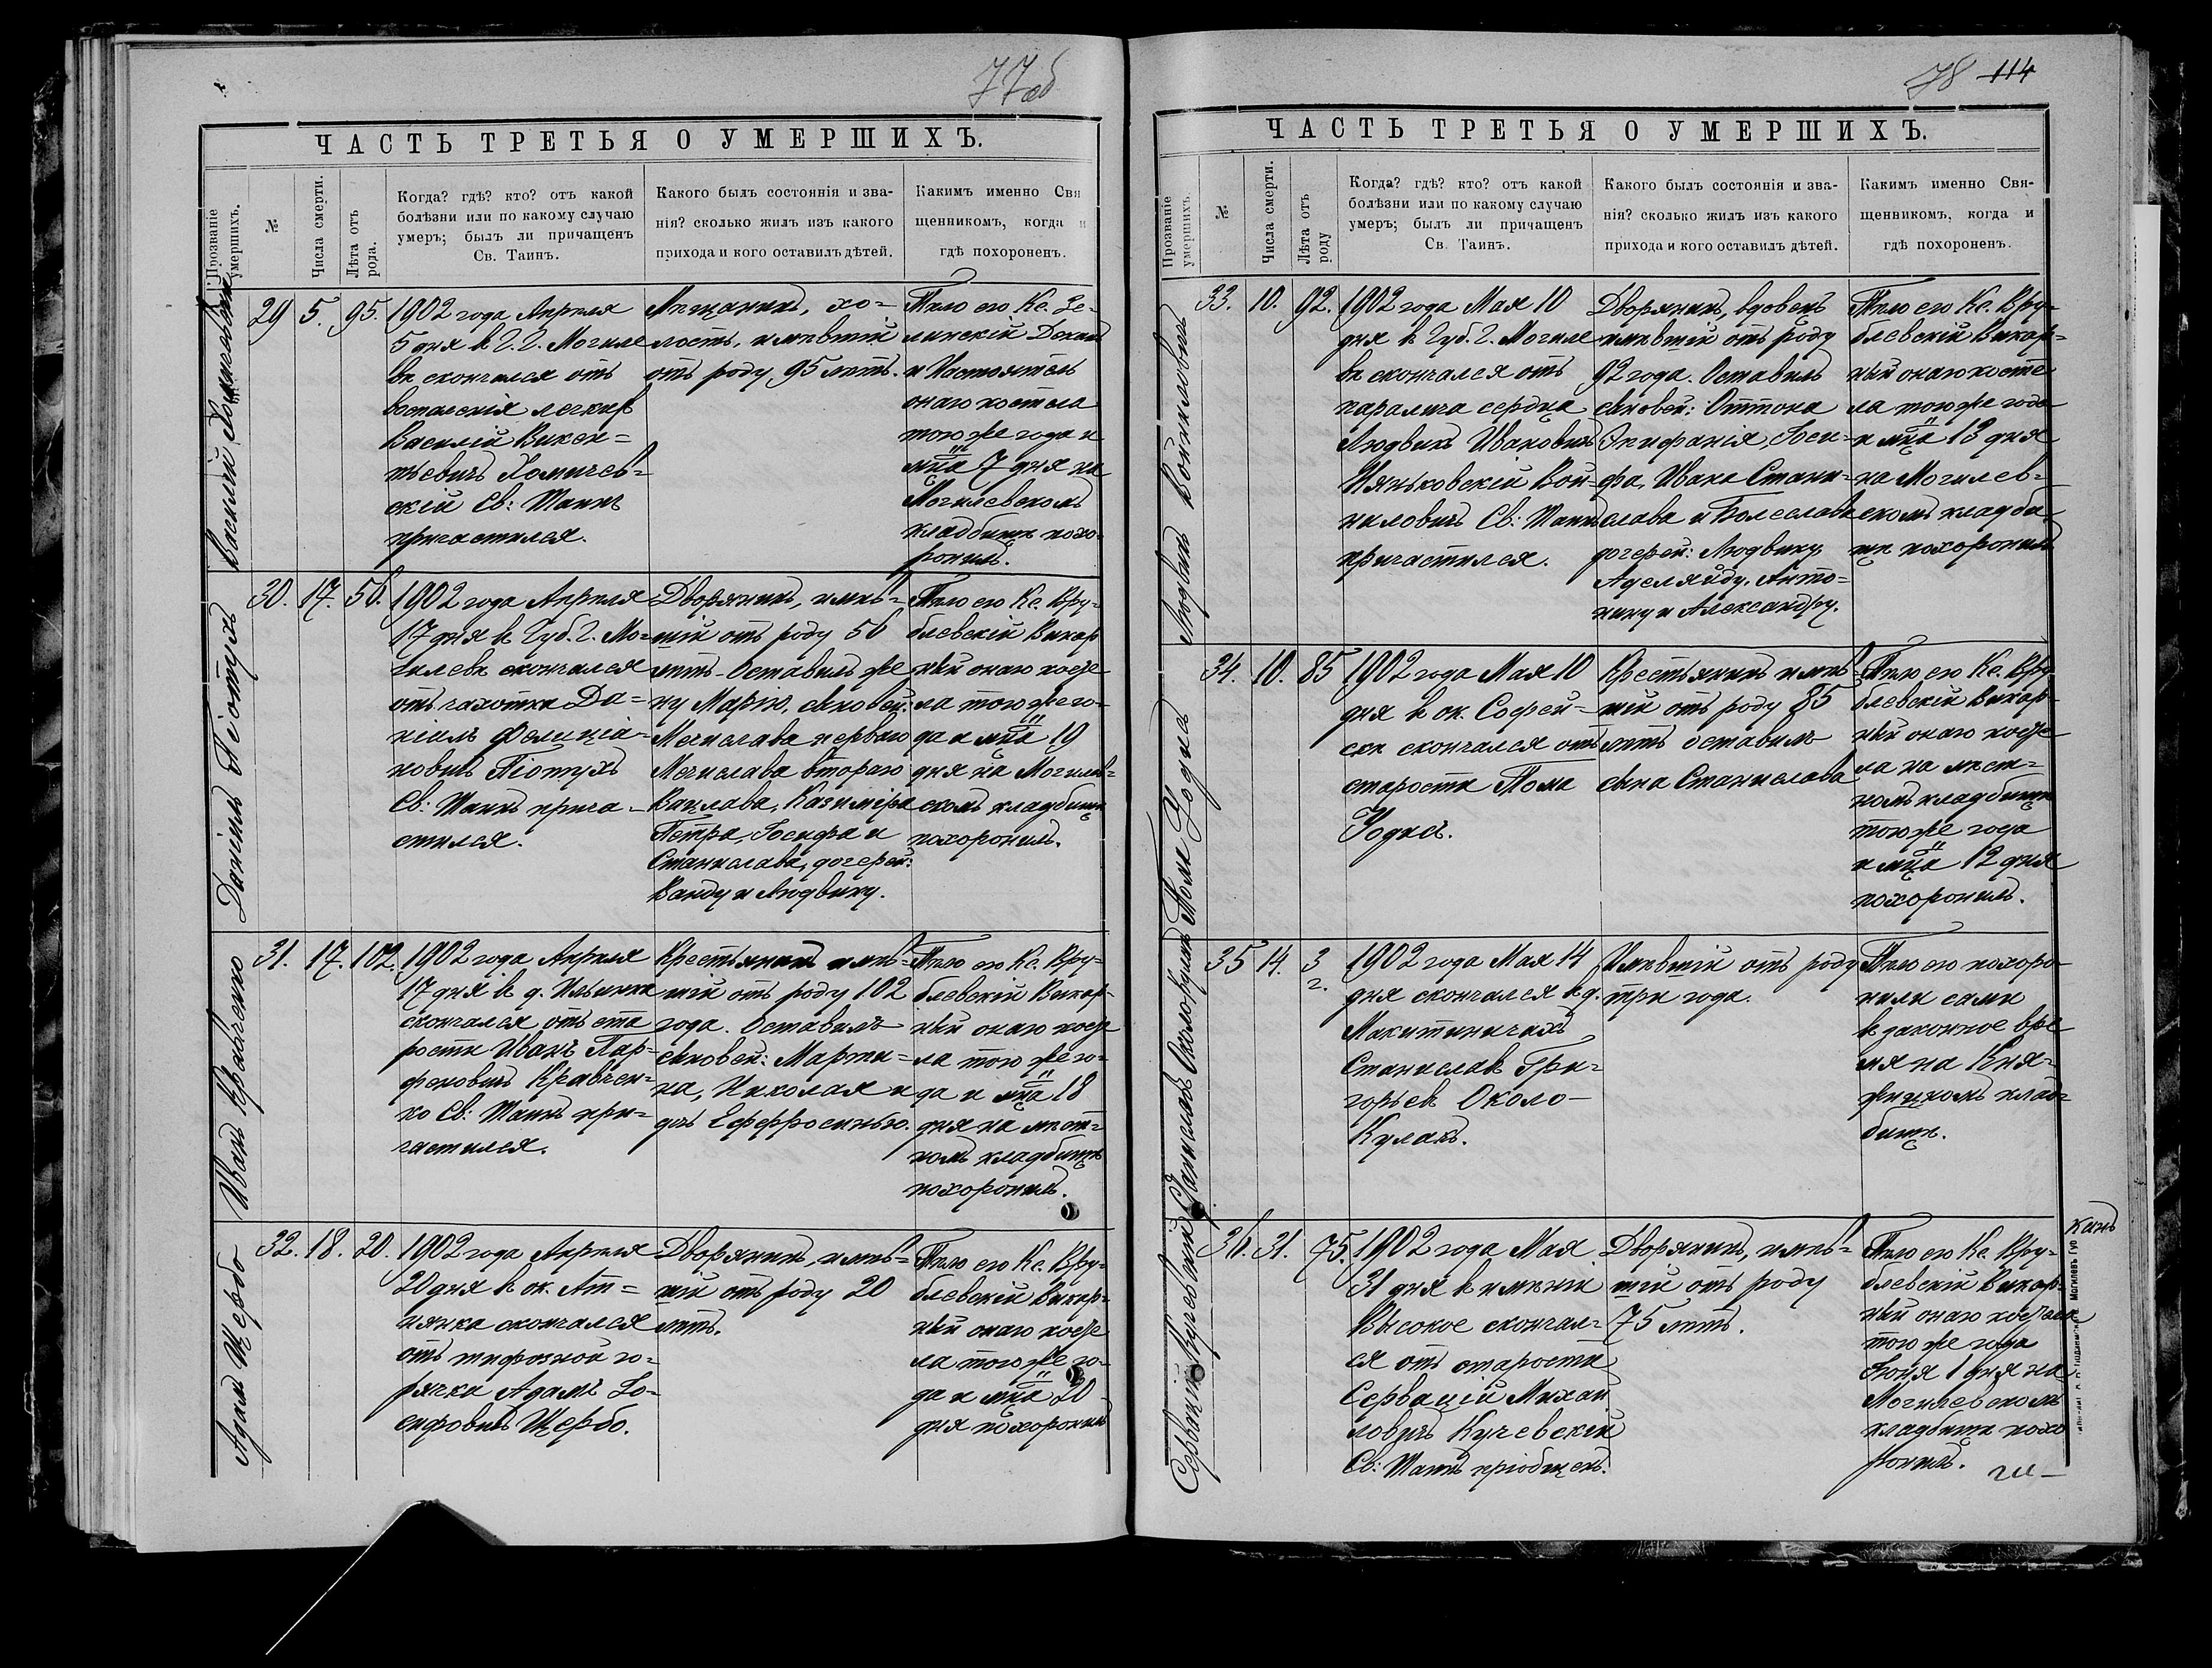 77об
ЧАСТЬ ТРЕТЬЯ О УМЕРШИХЪ.
Прозваніе умершихъ.
№
Числа смерти.
Лѣта отъ рода.
Когда? гдѣ? кто? отъ какой
болѣзни или по какому случаю
умеръ; былъ ли причащенъ
Св. Таинъ.
Какого былъ состоянія и зва-
нія? сколько жилъ изъ какого
прихода и кого оставилъ дѣтей.
Какимъ именно Свя
щенникомъ, когда и
гдѣ похороненъ.
Василій Хомичевскій
29
5.
95.
1902 года Апрѣля
5 дня въ Г. Г. Могиле
вѣ скончался отъ
воспаленія легкихъ
Василій Викен=
тьевичъ Хомичев=
скій Св: Таинъ
причастился.
Мѣщанинъ, хо=
лостъ, имѣвшій
отъ роду 95 лѣтъ.
Тѣло его Кс. Зе-
линскій Деканъ
и Настоятель
онаго костела
того же года и
мца 7 дня на
Могилевскомъ
кладбищѣ похо-
ронилъ.
Даніилъ Піотухъ
30.
17.
56.
1902 года Апрѣля
17 дня въ Губ. Г. Мо=
гилевѣ скончался
отъ чахотки Да=
ніилъ Фелиціа-
новичъ Піотухъ
Св: Таинъ прича-
стился.
Дворянинъ, имѣв=
шій отъ роду 56
лѣтъ. Оставилъ же
ну Марію, сыновей:
Мечислава перваго
Мечислава втораго
Вацлава, Казиміра
Петра, Іосифа и
Станислава, дочерей:
Ванду и Людвику.
Тѣло его Кс. Вру-
блевскій Викар
ный онаго косте
ла того же го-
да и мца 19
дня на Могилев=
скомъ кладбищѣ
похоронилъ.
Иванъ Кравченко
31.
17.
102.
1902 года Апрѣля
17 дня въ д. Ильинкѣ
скончался отъ ста
рости Иванъ Пар-
феновичъ Кравчен=
ко Св: Таинъ при=
частился.
Крестьянинъ имѣв=
шій отъ роду 102
года. Оставилъ
сыновей: Марти=
на, Николая и
дчь Ефросинью.
Тѣло его Кс. Вру-
блевскій Викар-
ный онаго косте
ла того же го-
да и мца 18
дня на мѣст=
номъ кладбищѣ
похоронилъ.
Адамъ Щербо
32.
18.
20.
1902 года Апрѣля
20 дня въ ок. Ат=
нянка скончался
отъ тифозной го=
рячки Адамъ Іо-
сифовичъ Щербо.
Дворянинъ, имѣв=
шій отъ роду 20
лѣтъ.
Тѣло его Кс. Вру-
блевскій Викар-
ный онаго косте
ла того же го-
да и мца 20
дня похоронилъ
78 114
ЧАСТЬ ТРЕТЬЯ О УМЕРШИХЪ.
Прозваніе умершихъ.
№
Числа смерти.
Лѣта отъ роду
Когда? гдѣ? кто? отъ какой
болѣзни или по какому случаю
умеръ; былъ ли причащенъ
Св. Таинъ.
Какого былъ состоянія и зва-
нія? сколько жилъ изъ какого
прихода и кого оставилъ дѣтей.
Какимъ именно Свя-
щенникомъ, когда и
гдѣ похороненъ.
Людвикъ Войниловичъ
33.
10.
92.
1902 года Мая 10
дня въ Губ. Г. Могиле
вѣ скончался отъ
паралича сердца
Людвикъ Ивановичъ
Няньковскій Вой=
ниловичъ Св: Таинъ
причастился.
Дворянинъ, вдовецъ
имѣвшій отъ роду
92 года. Оставилъ
сыновей: Оттона
Эпифанія, Іоси=
фа, Ивана Стани-
слава и Болеслава
дочерей: Людвику
Аделяйду, Анто=
нину и Александру.
Тѣло его Кс. Вру-
блевскій Викар=
ный онаго косте
ла того же года
и мца 13 дня
на Могилев=
скомъ кладби
щѣ похоронилъ
Тома Ходисъ
34.
10.
85
1902 года Мая 10
дня въ ок. Софей=
скѣ скончался отъ
старости Тома
Ходисъ.
Крестьянинъ имѣв
шій отъ роду 85
лѣтъ оставилъ
сына Станислава
Тѣло его Кс. Вру
блевскій Викар-
ный онаго косте
ла на мѣст=
номъ кладбищѣ
того же года
и мца 12 дня
похоронилъ.
Станиславъ Околокулакъ
35
14.
3 г.
1902 года Мая 14
дня скончался в д.
Макитиничахъ
Станиславъ Гри=
горьевъ Около-
Кулакъ.
Имѣвшій отъ роду
три года.
Тѣло его похоро-
нили сами
въ законное вре
мя на Кня=
жицкомъ клад=
бищѣ.
Сервацій Кучевскій
36.
31.
75.
1902 года Мая
31 дня в имѣніи
Высокое скончал=
ся отъ старости
Сервацій Михай
ловичъ Кучевскій
Св: Таинъ пріобщенъ.
Дворянинъ, имѣв=
шій отъ роду
75 лѣтъ.
Тѣло его Кс. Вру-
блевскій Викар-
ный онаго костела
того же года
Іюня 1 дня на
Могилевскомъ
кладбищѣ похо
ронилъ.